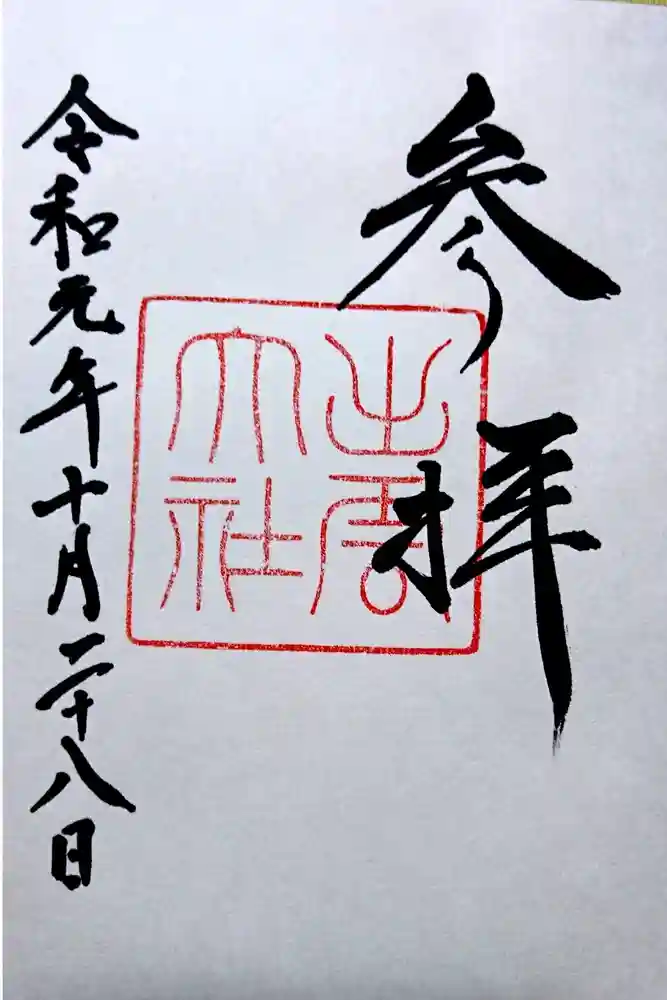 参拝
出雲大社
令和元年十月二十八日